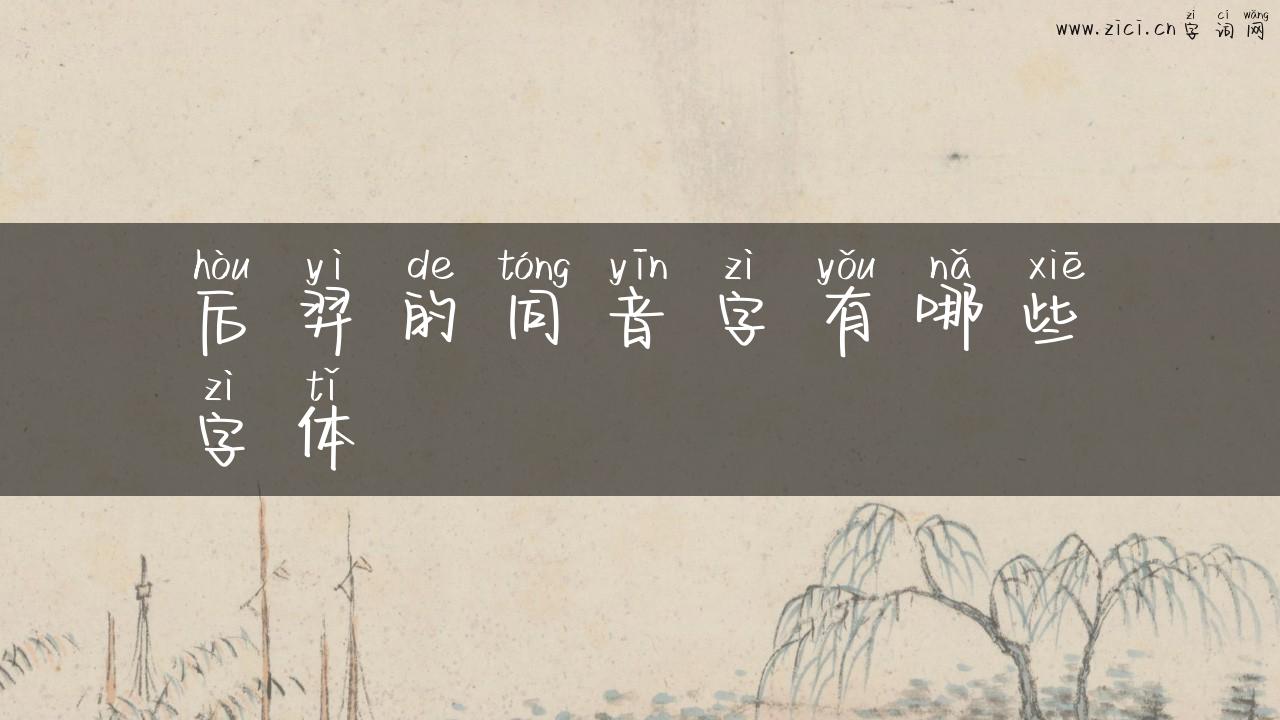 zì cí wǎng
www.zici.cn 字词网
hòu yì de tóng yīn zì yǒu nǎ xiē
后羿的同音字有哪些
zì tǐ
字体